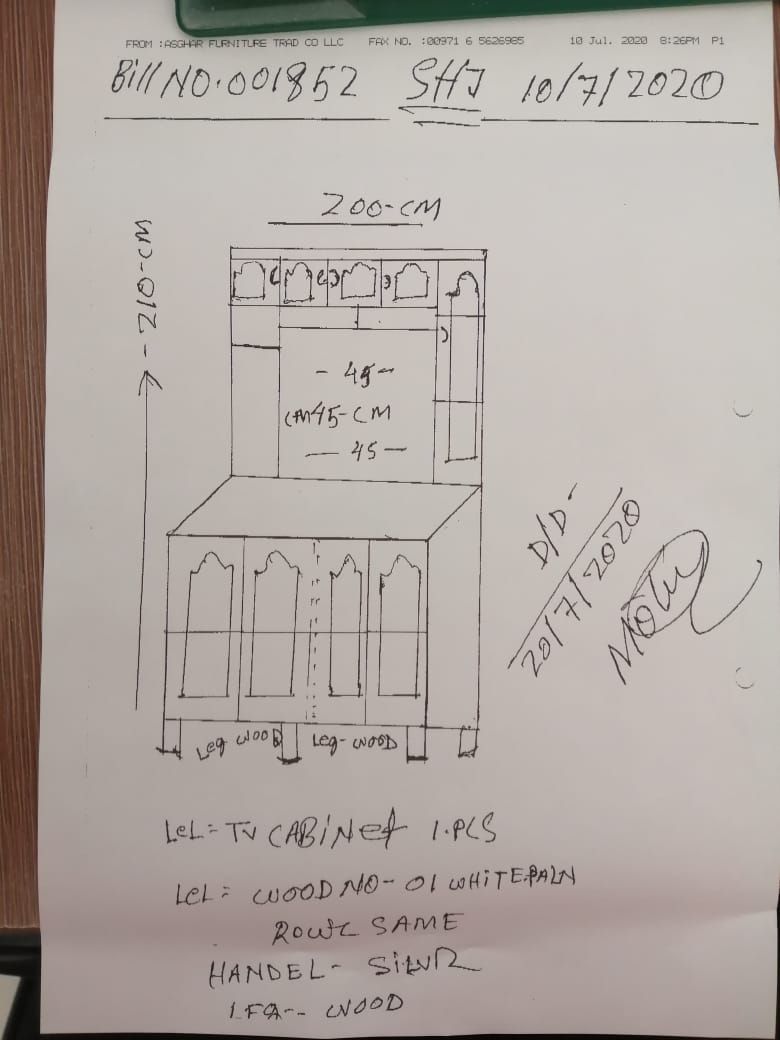 FROM :ASGHAR FURNITURE TRAD CO LLC FAX NO. :00971 6 5626985 10 Jul. 2020 8:26PM P1
Bill NO.001852 SHJ 10/7/2020
200-CM
210-CM
- 45-
CM45-CM
- 45 -
D/D
20/7/2020
Leg WOOD Leg-WOOD
LeL= TV CABiNet 1.PCS
LeL= WOOD NO- 01 WHiTE.PALN
SAME
HANDEL- SiLVR
WOOD